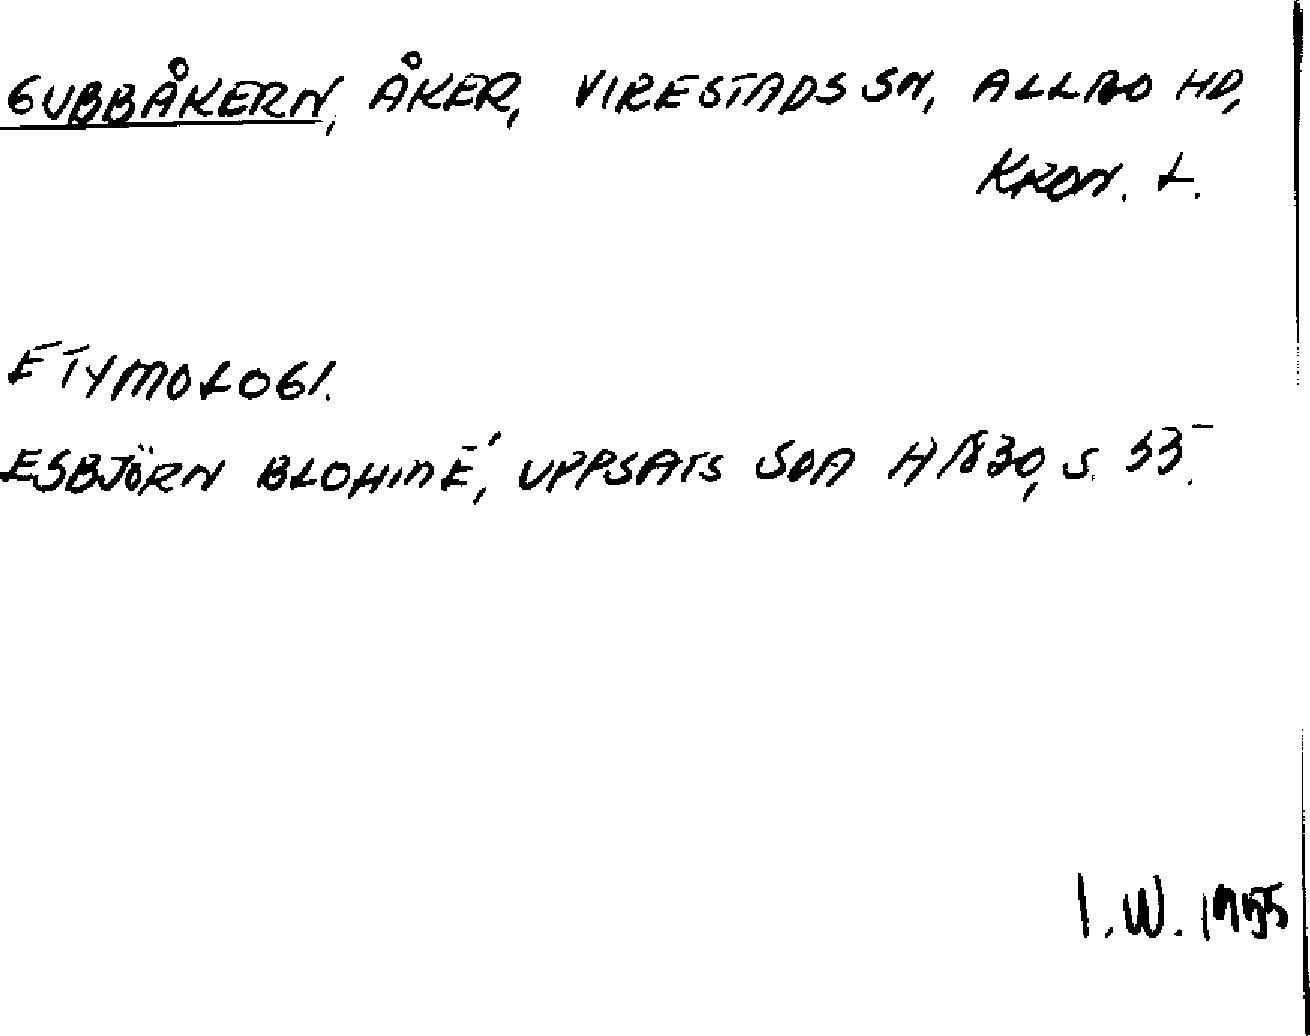 GUBBÅKERN, ÅKER, VIRESTADS SN, ALLBO HD,
KRON. L.
ETYMOLOGI.
ESBJÖRN BLOHMÉ, UPPSATS SOA H 1830, S. 35.
I.W. 1955